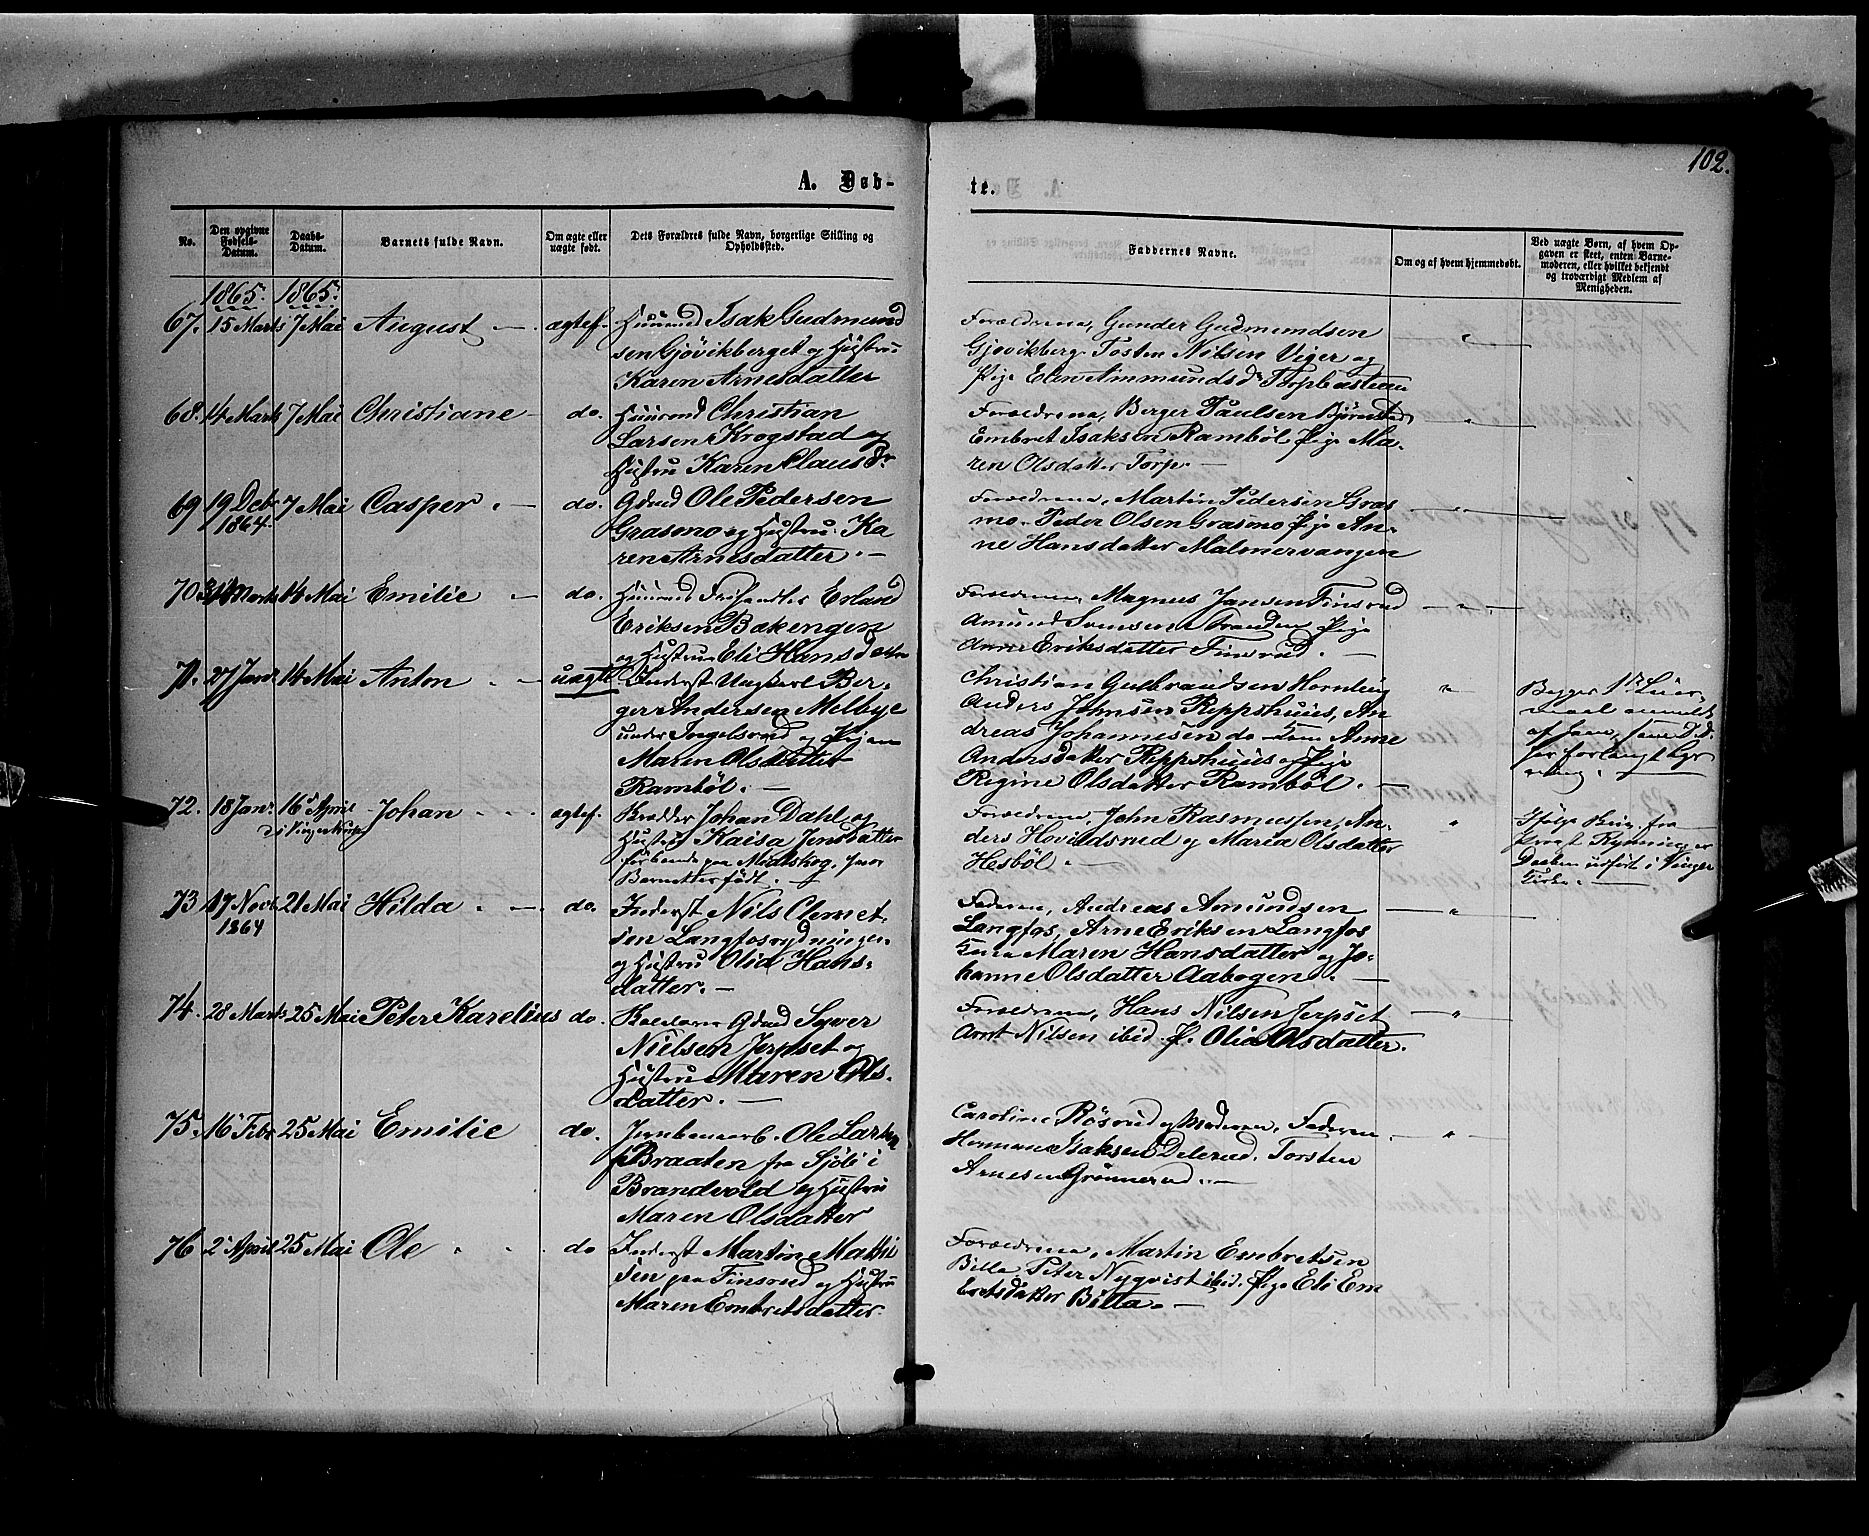 102.
A. Døb-
te.
No.
Den opgivne Fødsels-Datum.
Daabs-Datum.
Barnets fulde Navn.
Om ægte eller uægte født.
Dets Forældres fulde Navn, borgerlige Stilling og Opholdssted.
Faddernes Navne.
Om og af hvem hjemmedøbt.
Ved uægte Børn, af hvem Opgaven er skeet, enten Barnemoderen, eller hvilket bekjendt og troværdigt Medlem af Menigheden.
1865. 1865.
67. 15 Marts 7 Mai August — ægtef. Huusmd Isak Gudmund
sen Gjøvikberget og Hustru
Karen Arnesdatter
Forældrene, Gunder Gudmundsen
Gjøvikberg Tosten Nilsen Viger og
Pige Elen Ammundsd. Torpbasteau
68. 14 Marts 7 Mai Christiane — do. Huusmd Christian
Larsen Krogstad og
Hustru Karen Clausdr
Forældrene, Berger Paulsen Bjørnstad
Embret Isaksen Rambøl Pige Ma-
ren Olsdatter Torp. —
69 19 Debr 1864. 7 Mai Casper. — do. Gdmd Ole Pedersen
Grasmo og Hustru Ka
ren Arnesdatter. —
Forældrene, Martin Pedersen Gras
mo. Peder Olsen Grasmo Pige An-
ne Hansdatter Malmervangen
70 Marts 14 Mai Emilie — do. Huusmd Erland
Eriksen Bækengen
og Hustru Eli Hansdatter
Forældrene, Magnus Jansen Finsrud
Amund Svensen Pige
Anne Eriksdatter Finsrud. —
71. 27 Janr 14 Mai Anton — uægte Inderst Ungkarl Ber-
ger Andersen Melbye
under Ingelsrud og Pigen
Maren Olsdatter
Rambøl. —
Christian Gulbrandsen Hornling
Anders Johnsen Reppshuus, An
dreas Johannesen do Kone Anne
Andersdatter Reppshuus og Pige
Regine Olsdatter Rambøl. —
Begges 1ste Leier-
maal anmeldt
af ham, som
har forlangt
72. 18 Janr 16 April i Vinger Kirke Johan ægtef. Johan Dahl og
Hustru Kaisa Jensdatter
paa Medskog, hvor
Barnet er født. —
Forældrene, John Rasmussen, An-
ders Hovindsrud og Maria Olsdatter
Hesbøl. —
Ifølge Bev. fra
Provst Rynning er
Daaben udført i Vinger
Kirke. —
73 17 Novbr 1864 21 Mai Hilda. — do. Inderst Nils Clemet-
sen Langfosrydningen
og Hustru Olia Hans-
datter. —
Faderen, Andreas Amundsen
Langfos, Arne Eriksen Langfos
Kone Maren Hansdatter og Jo-
hanne Olsdatter Aabogen. —
74. 28 Marts 25 Mai Peter Karelius do. Gdmd Syver
Nielsen Jerpset og
Hustru Maren Ols-
datter. —
Forældrene, Hans Nilsen Jerpset
Arnt Nilsen ibid. P. Olia Olsdatter.
75. 16 Febr 25 Mai Emilie do. Jernbanearb. Ole Larsen
Braaten fra Sjøli i
Brandvold og Hustru
Maren Olsdatter
Caroline Røsrud og Moderen, Faderen
Herman Isaksen Delerud. Torsten
Arnesen Grønnerud. —
76 2 April 25 Mai Ole do Inderst Martin Mathi
sen paa Finsrud og Hustru
Maren Embretsdatter.
Forældrene, Martin Embretsen
Billa Peter Nyqvist ibid. Pige Eli Em
bretsdatter Billa. —